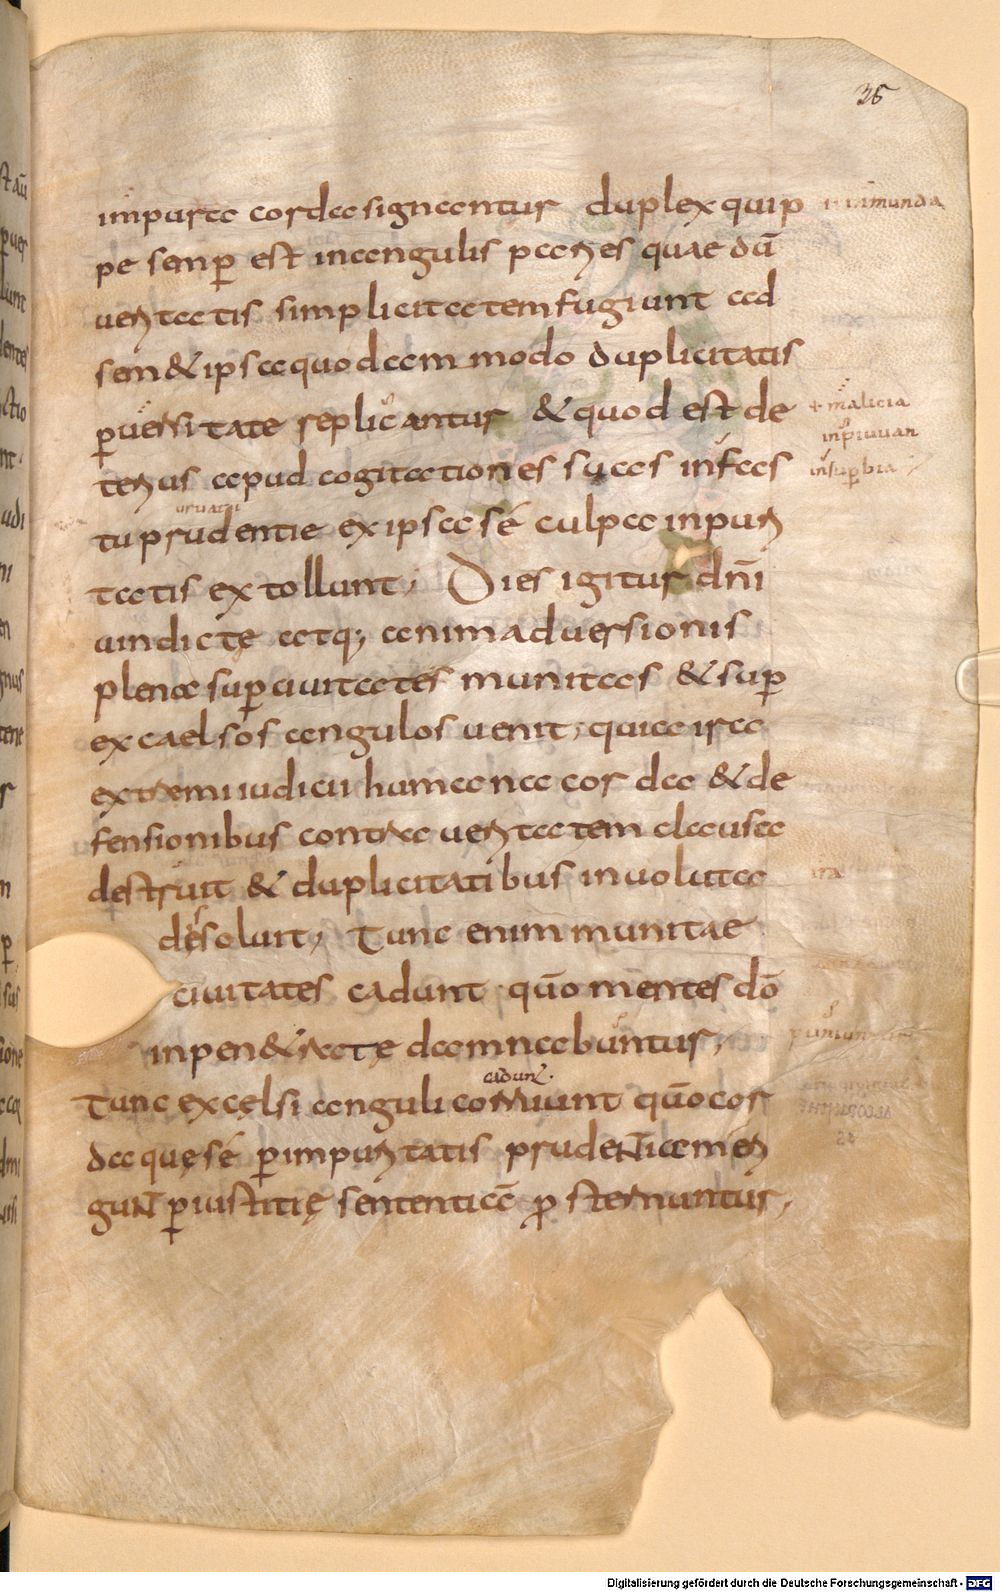 35
inpura corda signantur duplex quip
i inmunda
pe semp̄ est in angulis paries quae dū
ueritatis simplicitatem fugiunt ad
sem&ipsa quodam modo duplicitatis
p̱uersitate replicantur &quod est de
+ malicia
terius apud cogitationes suas in fas
insup̱bia
tu prudentie ex ipsa sé culpa inpuri
tatis extollunt; Dies igitur dn̄i
uindictę atq; animaduersionis
plena sup̱ ciuitates munitas & sup̱
excaelsos angulos uenit; quia ira
extremi iudicii humana corda & de
fensionibus contra ueritatem clausa
destruit & duplicitatibus inuoluta
ira
dęsoluit; Tunc enim munitae
ciuitates cadunt quō mentes dō
inpen&ratę damnabuntur;
cadunt.
Tunc excęlsi anguli corruunt quō cor
da quę sé p̱ impuritatis prudentiam eri
gunt p̱ iustitię sententiā p̱sternuntur;
Digitalisierung gefördert durch die Deutsche Forschungsgemeinschaft - DFG